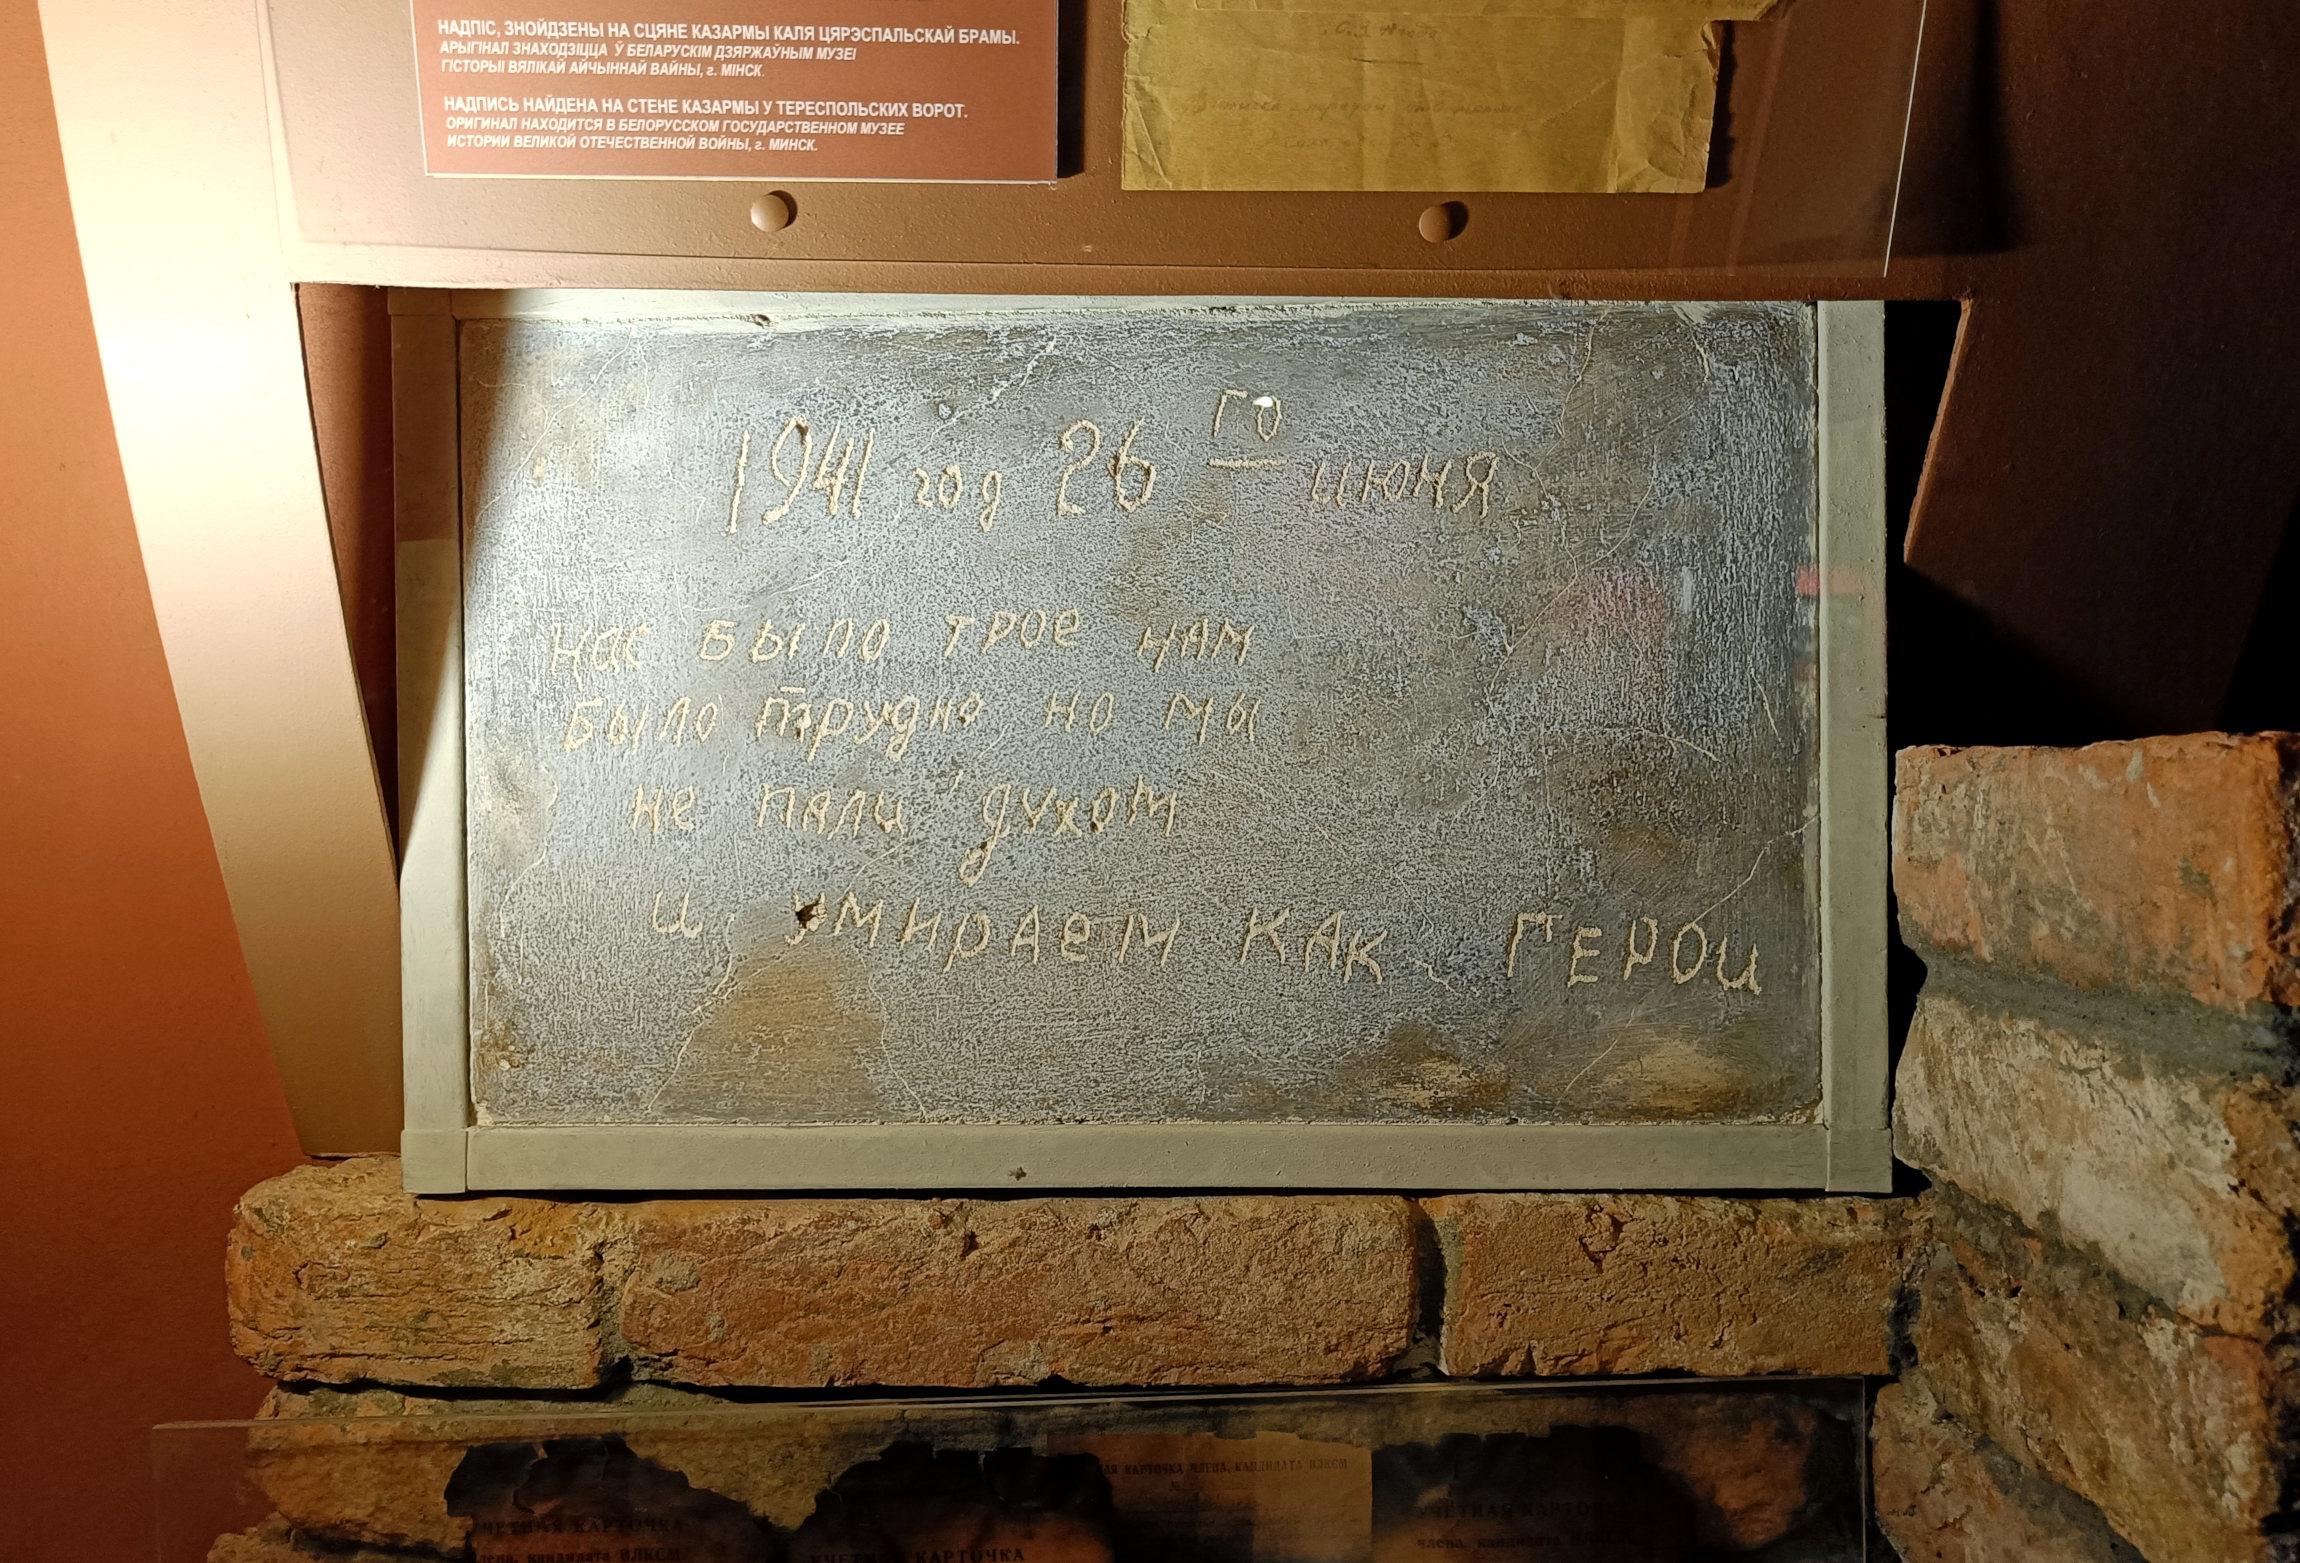 НАДПІС, ЗНОЙДЗЕНЫ НА СЦЯНЕ КАЗАРМЫ КАЛЯ ЦЯРЭСПАЛЬСКАЙ БРАМЫ.
АРЫГІНАЛ ЗНАХОДЗІЦЦА Ў БЕЛАРУСКІМ ДЗЯРЖАЎНЫМ МУЗЕІ
ГІСТОРЫІ ВЯЛІКАЙ АЙЧЫННАЙ ВАЙНЫ, г. МІНСК.
НАДПИСЬ НАЙДЕНА НА СТЕНЕ КАЗАРМЫ У ТЕРЕСПОЛЬСКИХ ВОРОТ.
ОРИГИНАЛ НАХОДИТСЯ В БЕЛОРУССКОМ ГОСУДАРСТВЕННОМ МУЗЕЕ
ИСТОРИИ ВЕЛИКОЙ ОТЕЧЕСТВЕННОЙ ВОЙНЫ, г. МИНСК.
1941 год 26 го июня
Нас было трое нам
было трудно но мы
не пали духом
и умираем как ГЕРОИ
КАРТОЧКА ЧЛЕНА, КАНДИДАТА ВЛКСМ
УЧЕТНАЯ КАРТОЧКА
кандидата ВЛКСМ
КАРТОЧКА
УЧЕТНАЯ КАРТОЧКА
члена, кандидата